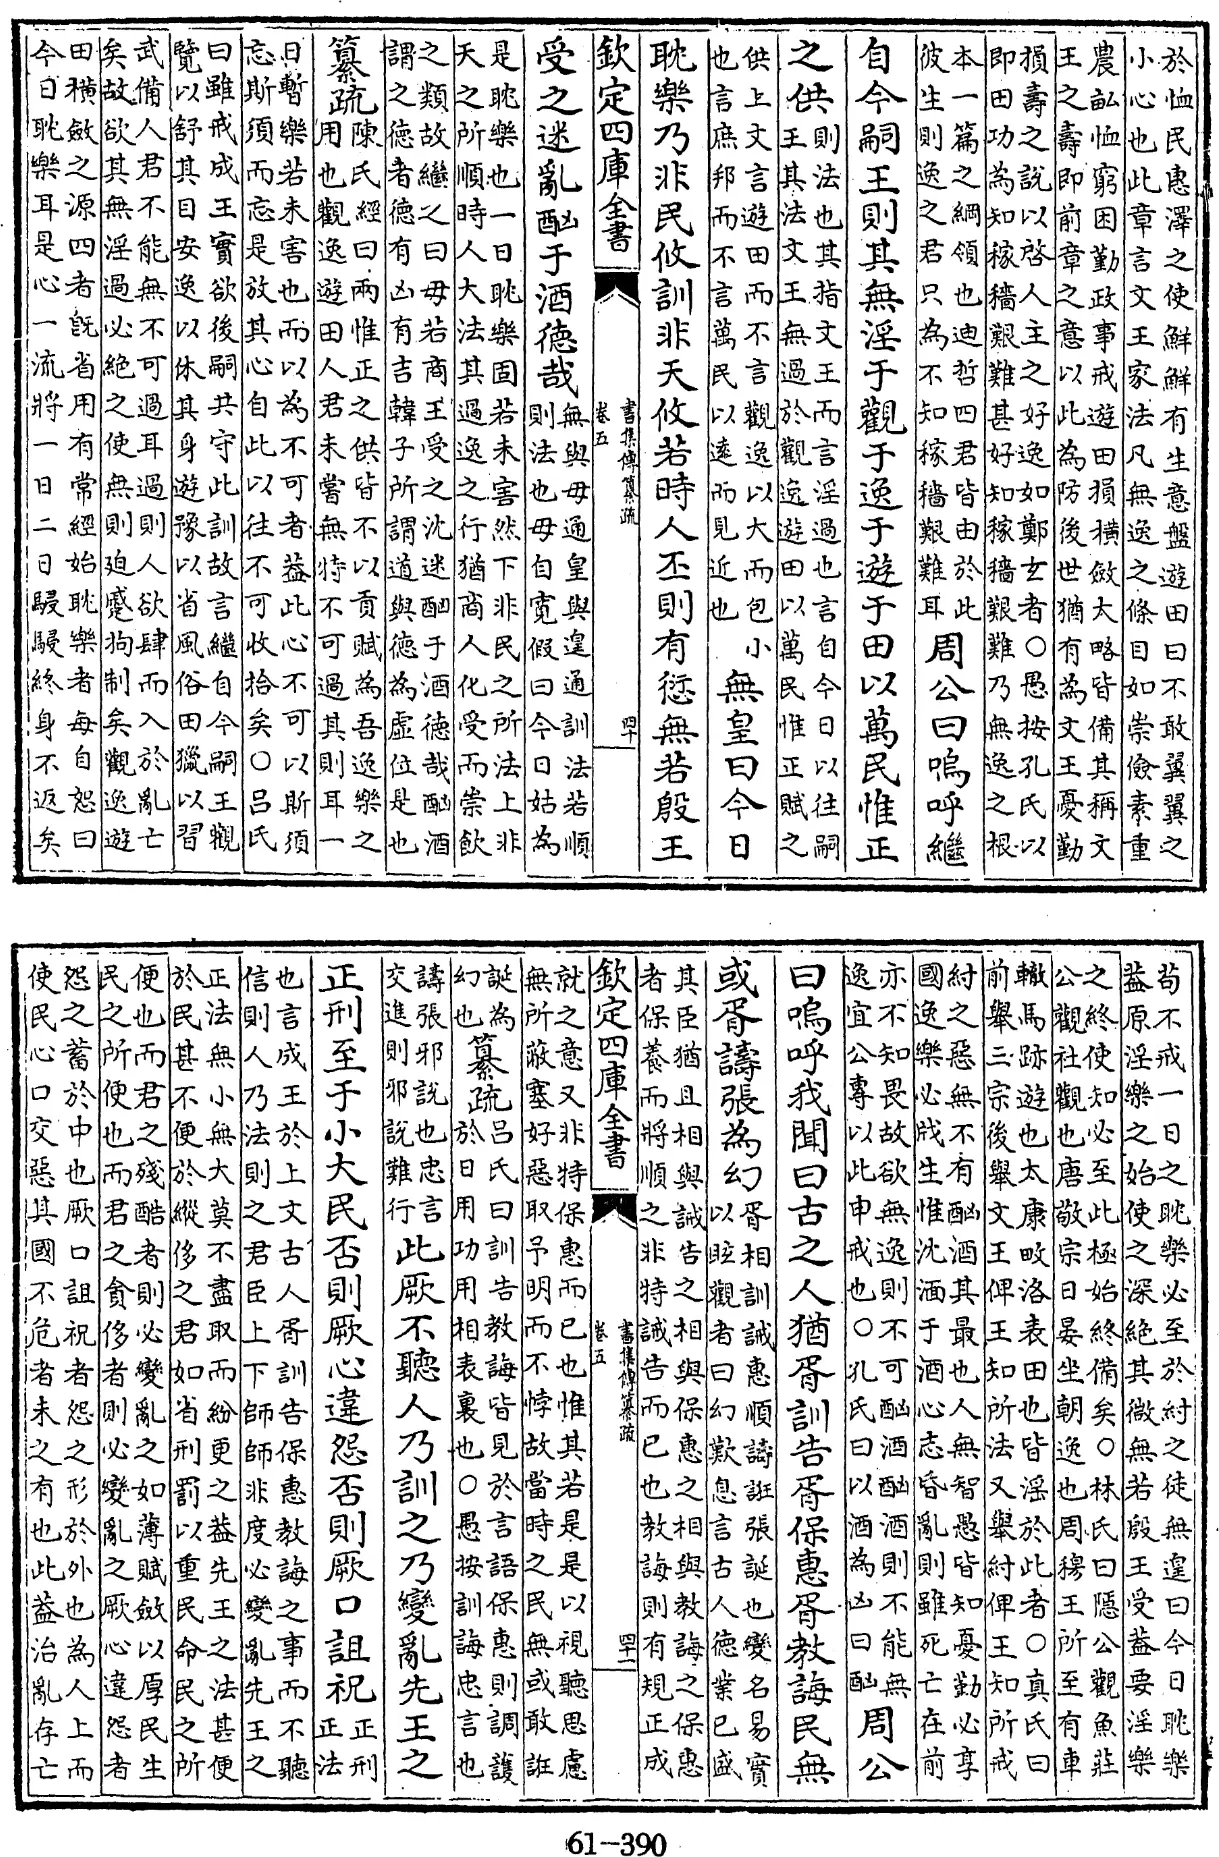 於恤民惠澤之使鮮鮮有生意盤遊田曰不敢翼翼之
小心也此章言文王家法凡無逸之條目如崇儉素重
農畝恤窮困勤政事戒遊田損横斂大略皆備其稱文
王之壽即前章之意以此為防後世猶有為文王憂勤
損壽之說以啓人主之好逸如鄭玄者○愚按孔氏以
即田功為知稼穡艱難甚好知稼穡艱難乃無逸之根
本一篇之綱領也迪哲四君皆由於此
彼生則逸之君只為不知稼穡艱難耳
周公曰嗚呼繼
自今嗣王則其無淫于觀于逸于遊于田以萬民惟正
之供
則法也其指文王而言淫過也言自今日以往嗣
王其法文王無過於觀逸遊田以萬民惟正賦之
供上文言遊田而不言觀逸以大而包小
也言庶邦而不言萬民以逺而見近也
無皇曰今日
耽樂乃非民攸訓非天攸若時人丕則有愆無若殷王
欽定四庫全書
書集傳纂疏
卷五
四十
受之迷亂酗于酒德哉
無與毋通皇與遑通訓法若順
則法也毋自寛假曰今日姑為
是耽樂也一日耽樂固若未害然下非民之所法上非
天之所順時人大法其過逸之行猶商人化受而崇飲
之類故繼之曰毋若商王受之沈迷酗于酒德哉酗酒
謂之德者德有凶有吉韓子所謂道與德為虚位是也
纂疏
陳氏經曰兩惟正之供皆不以貢賦為吾逸樂之
用也觀逸遊田人君未嘗無特不可過其則耳一
日暫樂若未害也而以為不可者葢此心不可以斯須
忘斯須而忘是放其心自此以往不可收拾矣○吕氏
曰雖戒成王實欲後嗣共守此訓故言繼自今嗣王觀
覽以舒其目安逸以休其身遊豫以省風俗田獵以習
武備人君不能無不可過耳過則人欲肆而入於亂亡
矣故欲其無淫過必絶之使無則廹蹙拘制矣觀逸遊
田横斂之源四者旣省用有常經始耽樂者每自恕曰
今日耽樂耳是心一流將一日二日駸駸終身不返矣
苟不戒一日之耽樂必至於紂之徒無遑曰今日耽樂
葢原淫樂之始使之深絶其微無若殷王受葢要淫樂
之終使知必至此極始終備矣○林氏曰隱公觀魚莊
公觀社觀也唐敬宗日晏坐朝逸也周穆王所至有車
轍馬跡遊也太康畋洛表田也皆淫於此者○真氏曰
前舉三宗後舉文王俾王知所法又舉紂俾王知所戒
紂之惡無不有酗酒其最也人無智愚皆知憂勤必享
國逸樂必戕生惟沈湎于酒心志昏亂則雖死亡在前
亦不知畏故欲無逸則不可酗酒酗酒則不能無
逸宜公專以此申戒也○孔氏曰以酒為凶曰酗
周公
曰嗚呼我聞曰古之人猶胥訓告胥保惠胥教誨民無
或胥譸張為幻
胥相訓誡惠順譸誑張誕也變名易實
以眩觀者曰幻歎息言古人德業已盛
其臣猶且相與誡告之相與保惠之相與教誨之保惠
者保養而將順之非特誡告而已也教誨則有規正成
欽定四庫全書
書集傳纂疏
卷五
四十一
就之意又非特保惠而已也惟其若是是以視聽思慮
無所蔽塞好惡取予明而不悖故當時之民無或敢誑
誕為幻也
纂疏
吕氏曰訓告教誨皆見於言語保惠則調護
於日用功用相表裏也○愚按訓誨忠言也
譸張邪說也忠言
交進則邪說難行
此厥不聽人乃訓之乃變亂先王之
正刑至于小大民否則厥心違怨否則厥口詛祝
正刑
正法
也言成王於上文古人胥訓告保惠教誨之事而不聽
信則人乃法則之君臣上下師師非度必變亂先王之
正法無小無大莫不盡取而紛更之葢先王之法甚便
於民甚不便於縱侈之君如省刑罰以重民命民之所
便也而君之殘酷者則必變亂之如薄賦斂以厚民生
民之所便也而君之貪侈者則必變亂之厥心違怨者
怨之蓄於中也厥口詛祝者怨之形於外也為人上而
使民心口交惡其國不危者未之有也此葢治亂存亡
61-390